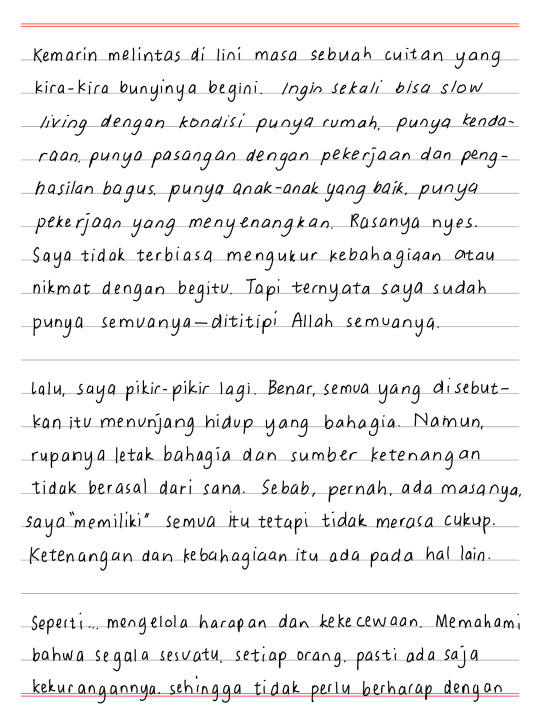 Kemarin melintas di lini masa sebuah cuitan yang
kira-kira bunyinya begini. Ingin sekali bisa slow
living dengan kondisi punya rumah, punya kenda-
raan, punya pasangan dengan pekerjaan dan peng-
hasilan bagus, punya anak-anak yang baik, punya
pekerjaan yang menyenangkan. Rasanya nyes.
Saya tidak terbiasa mengukur kebahagiaan atau
nikmat dengan begitu. Tapi ternyata saya sudah
punya semuanya—dititipi Allah semuanya.
Lalu, saya pikir-pikir lagi. Benar, semua yang disebut-
kan itu menunjang hidup yang bahagia. Namun,
rupanya letak bahagia dan sumber ketenangan
tidak berasal dari sana. Sebab, pernah, ada masanya,
saya "memiliki" semua itu tetapi tidak merasa cukup.
Ketenangan dan kebahagiaan itu ada pada hal lain.
Seperti... mengelola harapan dan kekecewaan. Memahami
bahwa segala sesuatu, setiap orang, pasti ada saja
kekurangannya, sehingga tidak perlu berharap dengan